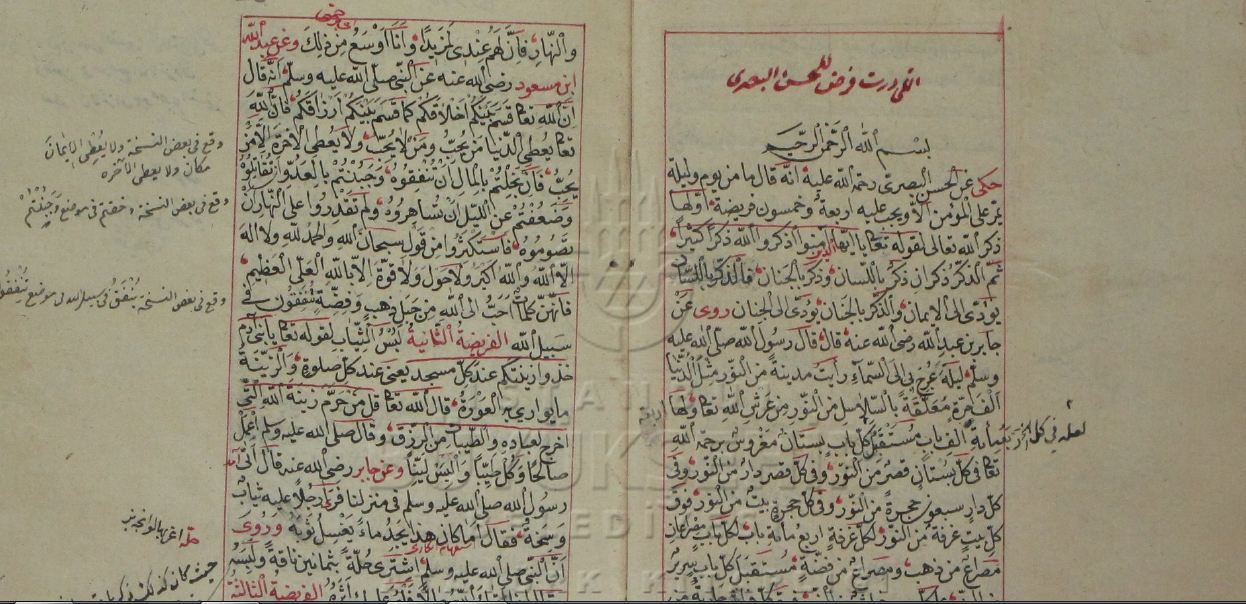 اللي درت فرض للحسن البصرى
بسم الله الرحمن الرحيم
حكى عن الحسن البصرى رحمة الله عليه انه قال ما من يوم وليلة
تمر على المؤمن الا ويجب عليه اربعة وخمسون فريضة اولها
ذكر الله تعالى لقوله تعا يا ايها الذين آمنوا اذكروا الله ذكرا كثيرا
ثم الذكر ذكران ذكر باللسان وذكر بالجنان فالذكر باللسان
يؤدى الى الايمان والذكر بالجنان يؤدى الى الجنان روى عن
جابر بن عبد الله رضى الله عنه قال قال رسول الله صلى الله عليه
وسلم ليلة عرج بى الى السماء رايت مدينة من النور مثل الدنيا
الف مرة معلقة بالسلاسل من النور من عرش الله تعا ولها
مائة الف باب مستقبل كل باب بستان مغروس برحمة الله
تعا فى كل بستان قصر من النور وفى كل قصر دار من النور وفى
كل دار سبعون حجرة من النور وفى كل حجرة بيت من النور فوق
كل بيت غرفة من النور لكل غرفة اربع مائة باب لكل باب مصراعان
مصراع من ذهب ومصراع من فضة مستقبل كل باب سرير
لعله فى كل
والنهار فان لهم عندى لمزيدا وانا اوسع من ذلك وعن عبد الله
ابن مسعود رضى الله عنه عن النبى صلى الله عليه وسلم انه قال
ان الله تعا قسم بينكم اخلاقكم كما قسم بينكم ارزاقكم فان الله
تعا يعطى الدنيا من يحب ومن لا يحب ولا يعطى الاخرة الا من
يحب فان بخلتم بالمال ان تنفقوه وجبنتم بالعدو ان تقاتلوه
وضعفتم عن الليل ان تساهروه ولم تقدروا على النهار ان
تصوموه فاستكثروا من قول سبحان الله والحمد لله ولا اله
الا الله والله اكبر ولا حول ولا قوة الا بالله العلى العظيم
فانهن كلمات احب الى الله من جبل ذهب وفضة تنفقون فى
سبيل الله الفريضة الثانية لبس الثياب لقوله تعا يا بنى آدم
خذوا زينتكم عند كل مسجد يعنى عند كل صلوة والزينة
ما يوارى به العورة قال الله تعا قل من حرم زينة الله التى
اخرج لعباده والطيبات من الرزق وقال صلى الله عليه وسلم اعمل
صالحا وكل طيبا والبس لينا وعن جابر رضى الله عنه قال اتى
رسول الله صلى الله عليه وسلم فى منزلنا فرءى رجلا عليه ثياب
وسخة فقال اما كان هذا يجد ماء يغسل ثوبه وروى
ان النبى صلى الله عليه وسلم اشترى حلة بثمانين ناقة وليسر
الفريضة الثالثة
وقع فى بعض النسخة ولا يعطى الايمان
مكان ولا يعطى الآخرة
وقع فى بعض النسخة وخفتم فى موضع وجبنتم
وقع فى بعض النسخة ينفق فى سبيل الله فى موضع تنفقون